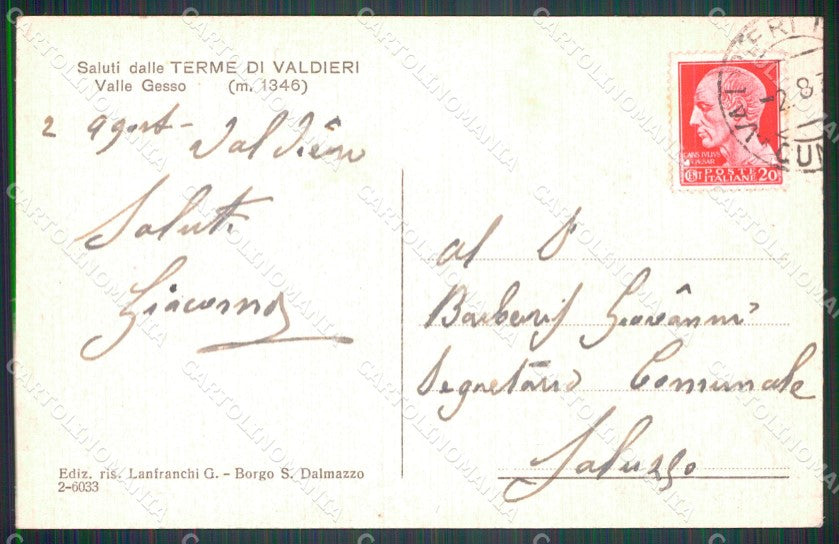 Saluti dalle TERME DI VALDIERI
Valle Gesso (m. 1346)
2 Agost - Valdieri
Saluti
Giacomo
Al
Barberis Giovanni
Segretario Comunale
Saluzzo
Ediz. ris. Lanfranchi G. - Borgo S. Dalmazzo
2-6033
CAIVS IVLIVS
CAESAR
CENT POSTE ITALIANE 20
2.8
CUN
CARTOLINOMANIA